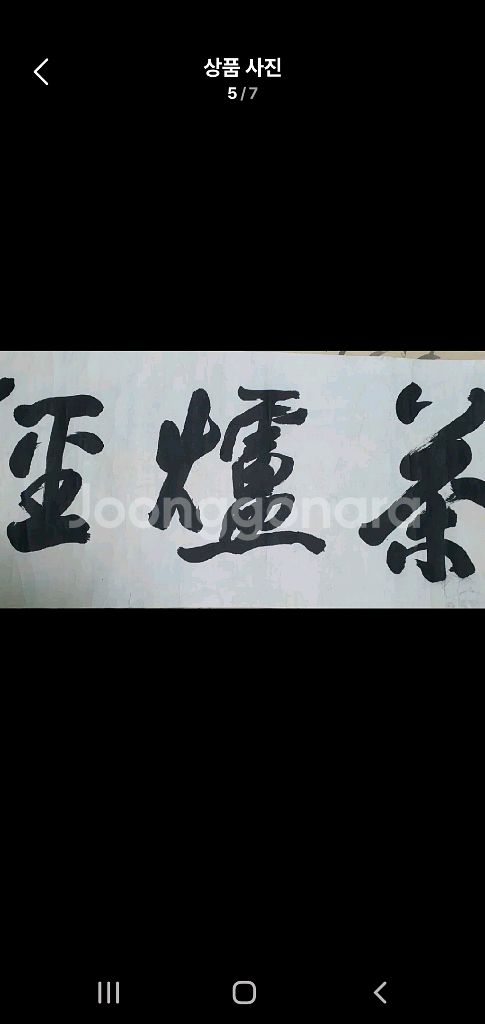 상품 사진
5/7
茶爐
Joonggonara